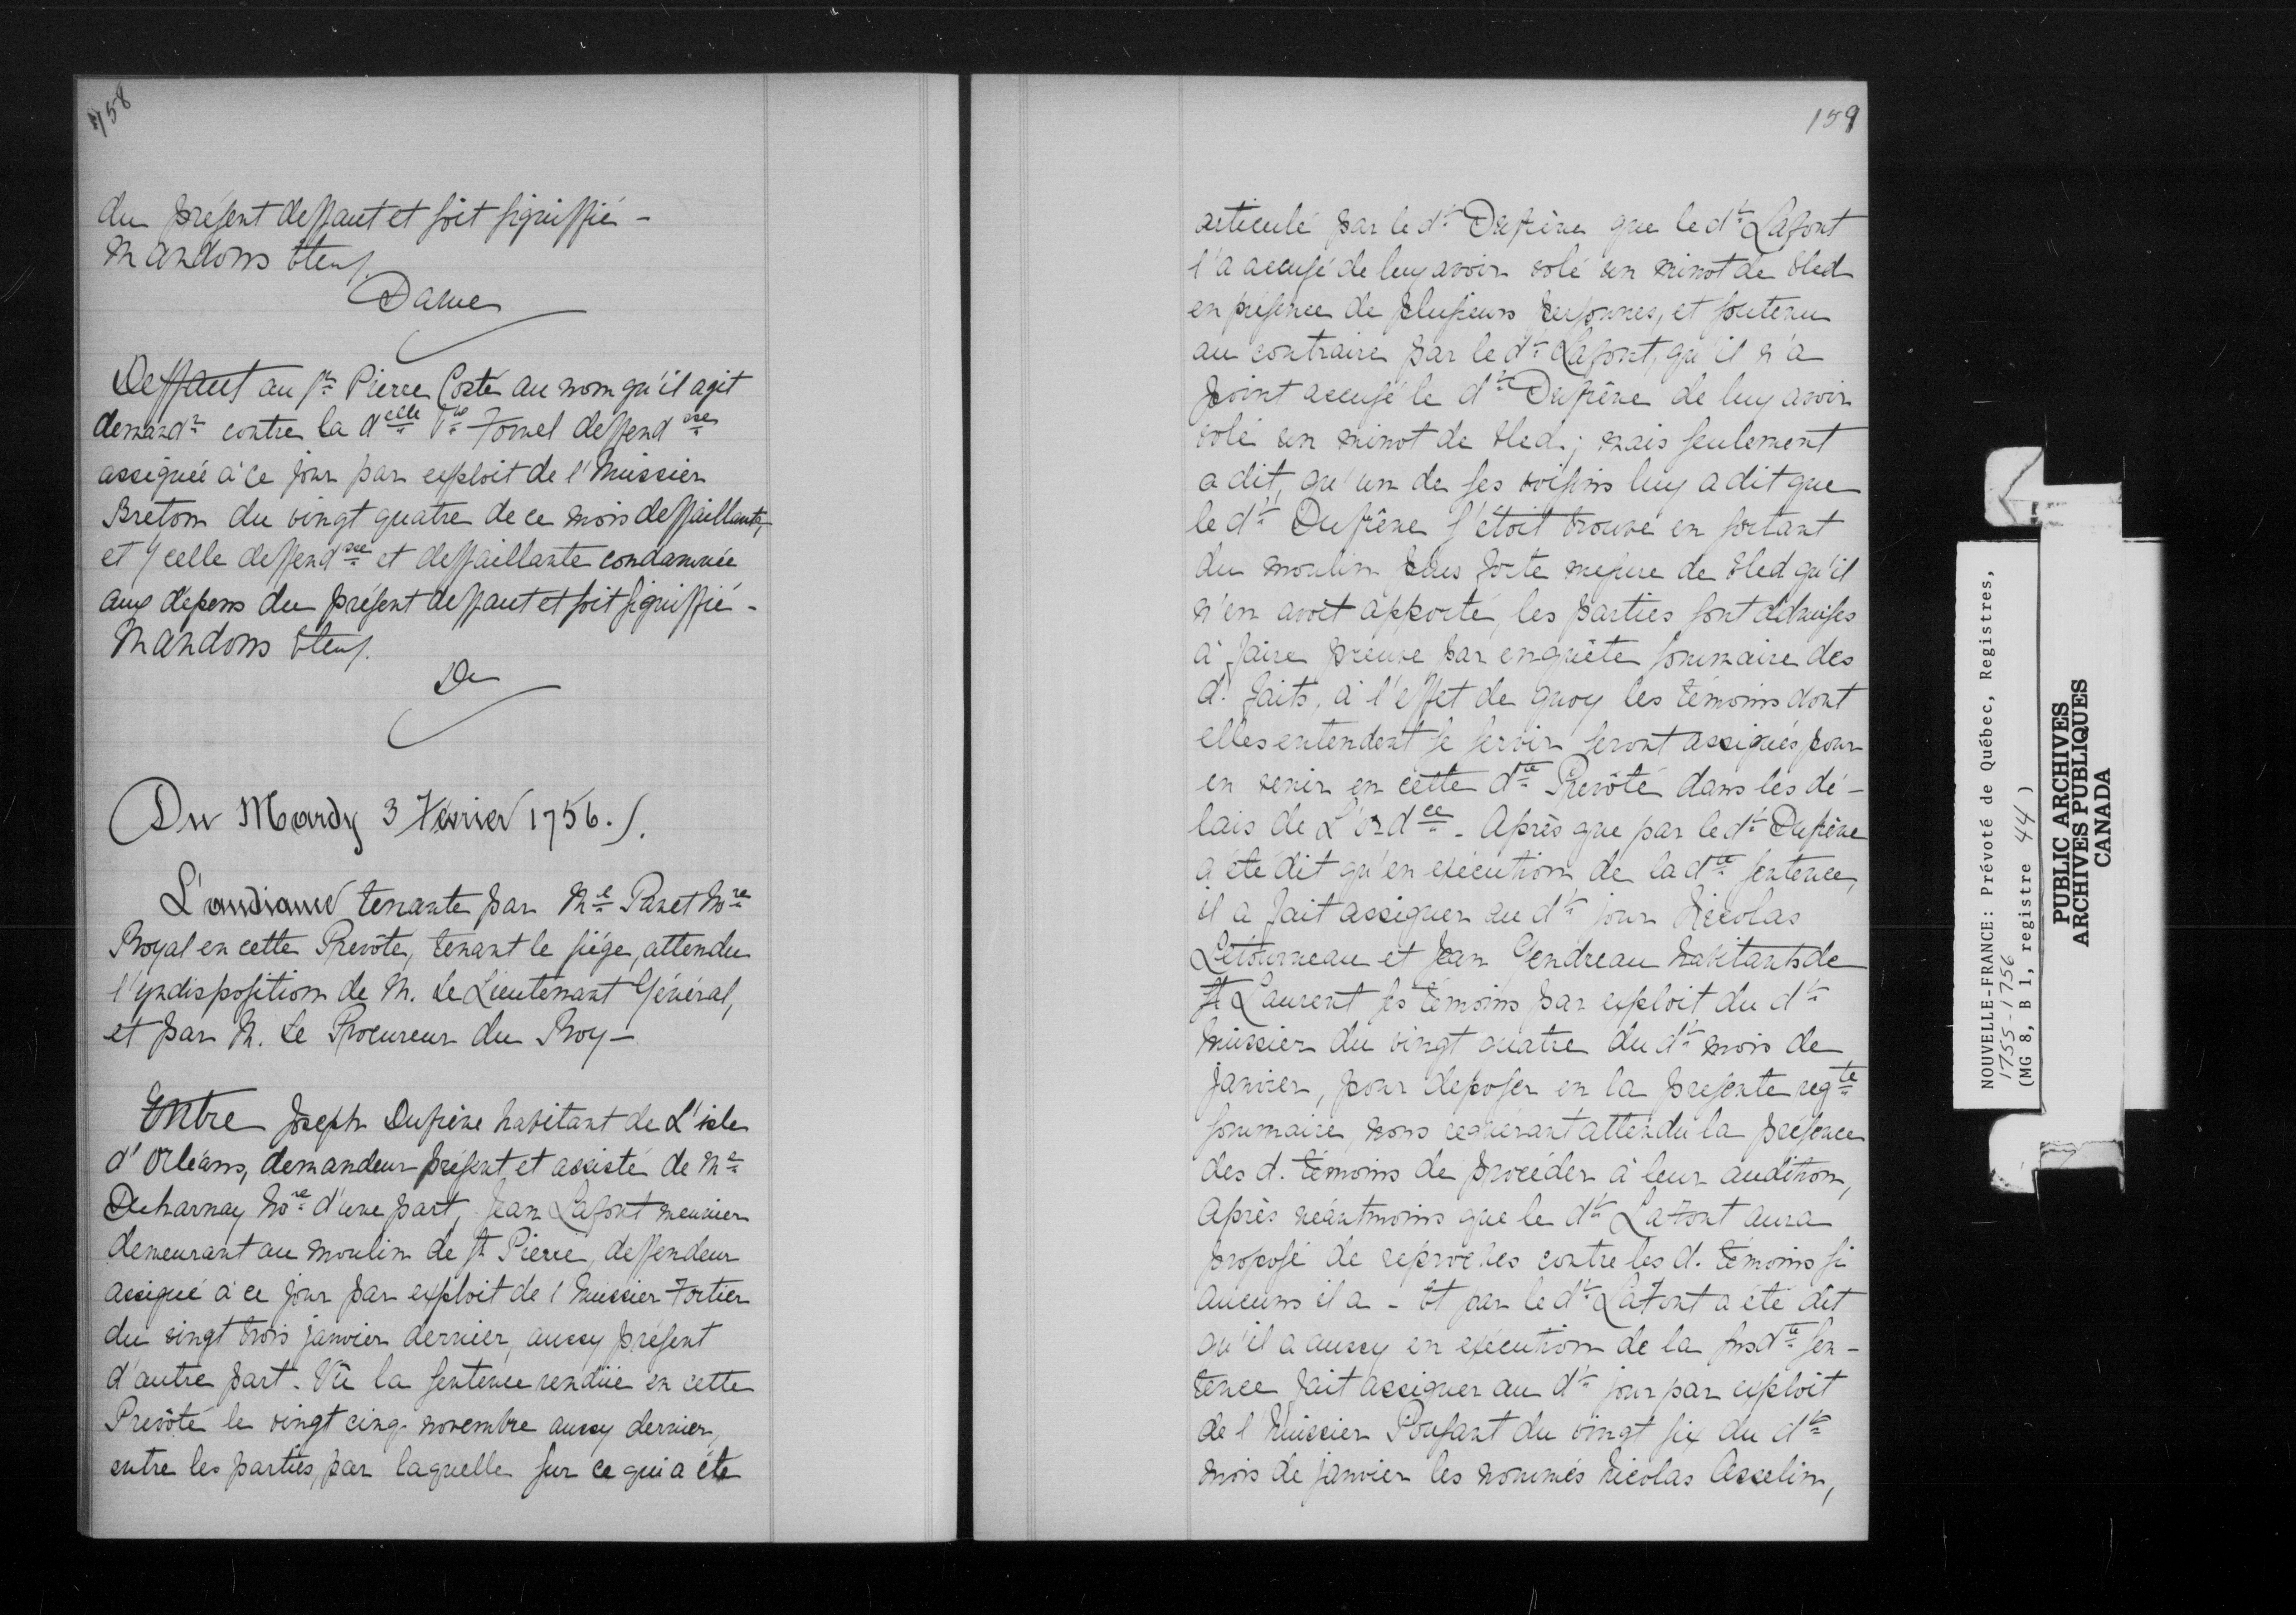 158
du présent deffaut et soit signiffié -
Mandons &tens.
Daine
Deffaut au Sr Pierre Costé au nom qu'il agit
demandr contre la delle Ve Fornel deffendsse
assignée à ce jour par exploit de l'huissier
Bretom du vingt quatre de ce mois deffaillante,
et ycelle deffendsse et deffaillante condamnée
aux dépens du présent deffaut et soit signiffié -
Mandons &tens.
Da
Du Mardy 3 Février 1756./.
L'audiance tenante par Me Panet Nore
Royal en cette Prevôté, tenant le siége, attendu
l'yndisposition de M. Le Lieutenant Général,
et par M. Le Procureur du Roy -
Entre Joseph Dufrêne habitant de L'isle
d'Orléans, demandeur présent et assisté de Me
Decharnay Nore d'une part, Jean Lafont meunier
demeurant au moulin de St Pierre, deffendeur
assigné à ce jour par exploit de l'huissier Fortier
du vingt trois janvier dernier, aussy présent
d'autre part. Vû la sentence rendüe en cette
Prevôté le vingt cinq novembre aussy dernier,
entre les parties, par laquelle sur ce qui a été
159
articulé par le dt Dufrêne que le dt Lafont
l'a accusé de luy avoir volé un minot de bled
en présence de plusieurs personnes, et soutenu
au contraire par le dt Lafont, qu'il n'a
point accusé le dt Dufrêne de luy avoir
volé un minot de bled; mais seulement
a dit, qu'un de ses voisins luy a dit que
le dt Dufrêne s'étoit trouvé en sortant
du moulin plus forte mesure de bled qu'il
n'en avoit apporté, les parties sont admises
à faire preuve par enquête sommaire des
d. faits, à l'effet de quoy les témoins dont
elles entendent se servir seront assignés pour
en venir en cette dte Prevôté dans les dé-
lais de L'ordce - Après que par le dt Dufrêne
a été dit qu'en exécution de la dte sentence,
il a fait assigner au dt jour Nicolas
Létourneau et Jean Gendreau habitants de
St Laurent ses témoins par exploit du dt
huissier du vingt quatre du dt mois de
janvier, pour déposer en la présente reqte
sommaire, nous requérant attendu la présence
des d. témoins de procéder à leur audition,
Après néantmoins que le dt Lafont aura
proposé de reproches contre les d. témoins si
aucuns il a - Et par le dt Lafont a été dit
qu'il a aussy en exécution de la susdte sen-
tence fait assigner au dt jour par exploit
de l'huissier Pousant du vingt six du dt
mois de janvier les nommés Nicolas Asselin,
NOUVELLE-FRANCE: Prévôté de Québec, Registres,
1755-1756
(MG 8, B 1, registre 44)
PUBLIC ARCHIVES
ARCHIVES PUBLIQUES
CANADA